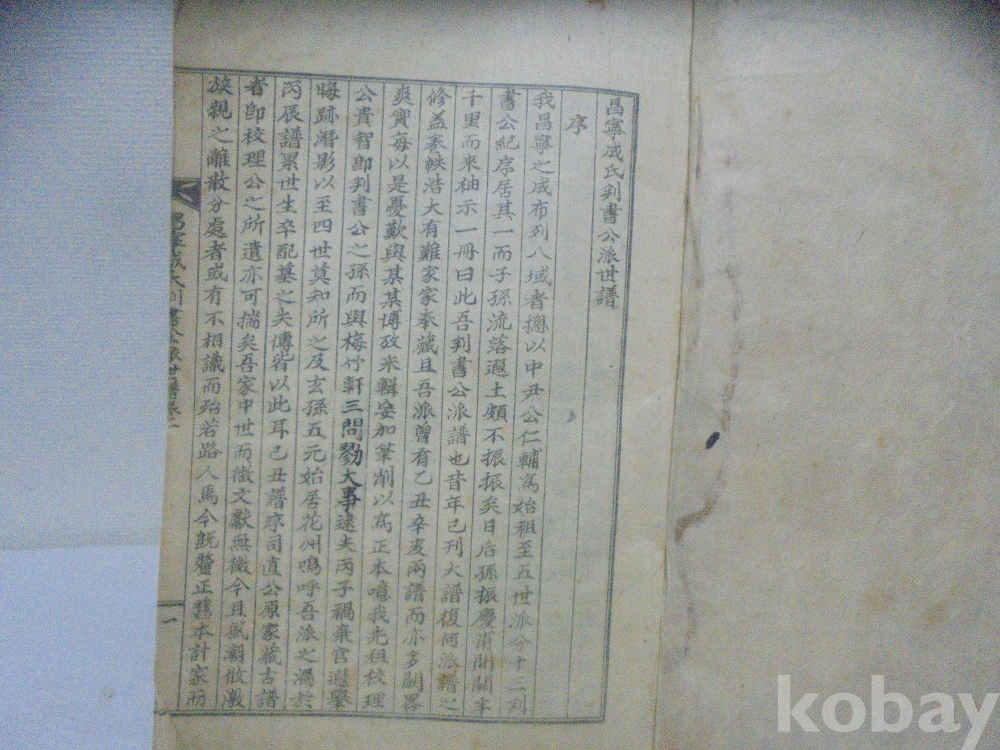 昌寧成氏判書公派世譜
序
我昌寧之成布列八域者摠以中尹公仁輔為始祖至五世派分十三列
書公紀序居其一而子孫流落遐土頗不振振矣日后孫振慶甫間關半
千里而來袖示一冊曰此吾判書公派譜也昔年已刊大譜復何派譜之
修盖卷帙浩大有難家家奉藏且吾派曾有乙丑辛亥兩譜而亦多闕畧
爽實每以是憂歎與某某博攷采輯妄加筆削以為正本噫我先祖校理
公貴智卽判書公之孫而與梅竹軒三問勠大事逮夫丙子禍棄官遐擧
晦跡潛影以至四世莫知所之及玄孫五元始居花州嗚呼吾派之濁於
丙辰譜累世生卒配墓之失傳皆以此耳己丑譜宗司直公原家藏古譜
者卽校理公之所遺亦可揣矣吾家中世而徵文獻無徵今且風霜散激
族親之離散分處者或有不相識而殆若路人焉今旣釐正舊本計家而
昌寧成氏判書公派世譜卷之一
一
kobay